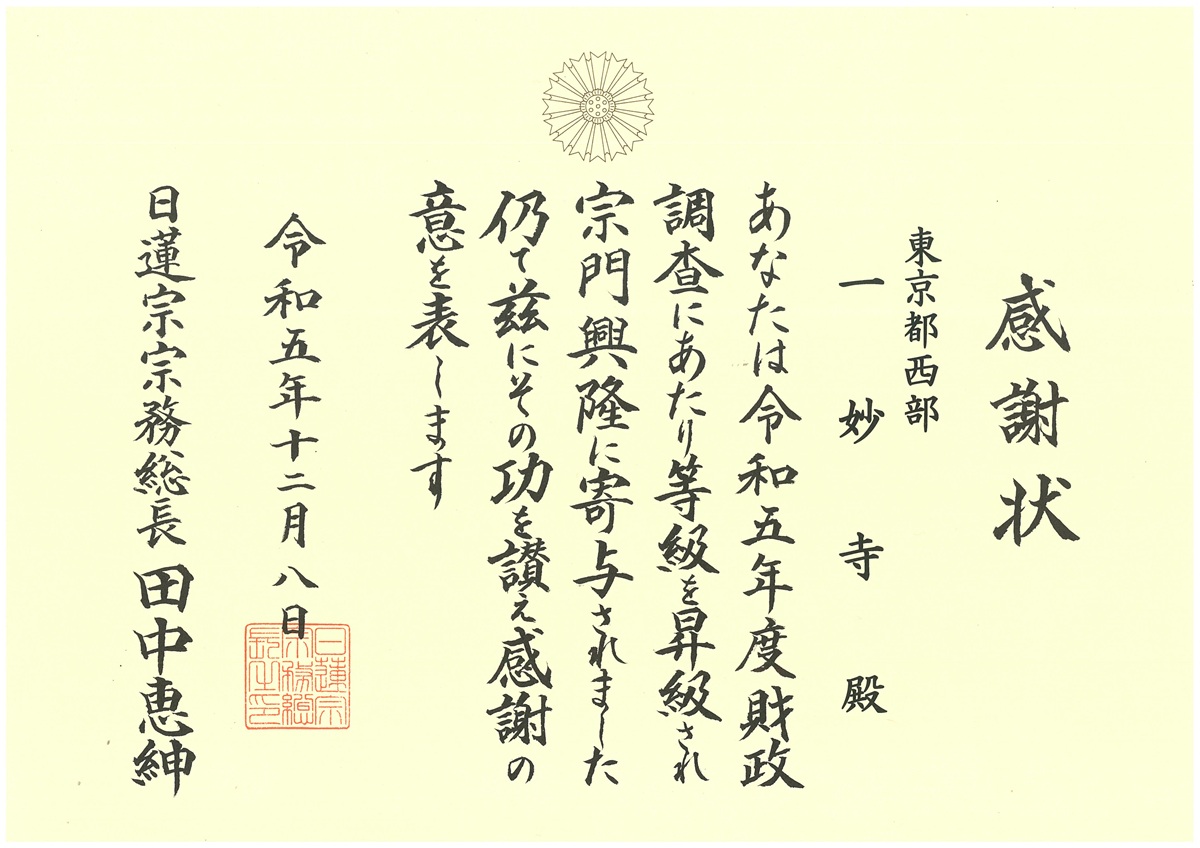 感謝状
東京都西部
一妙寺殿
あなたは令和五年度財政
調査にあたり等級を昇級され
宗門興隆に寄与されました
仍て茲にその功を讃え感謝の
意を表します
令和五年十二月八日
日蓮宗宗務総長 田中恵紳
日蓮宗
宗務総
長之印